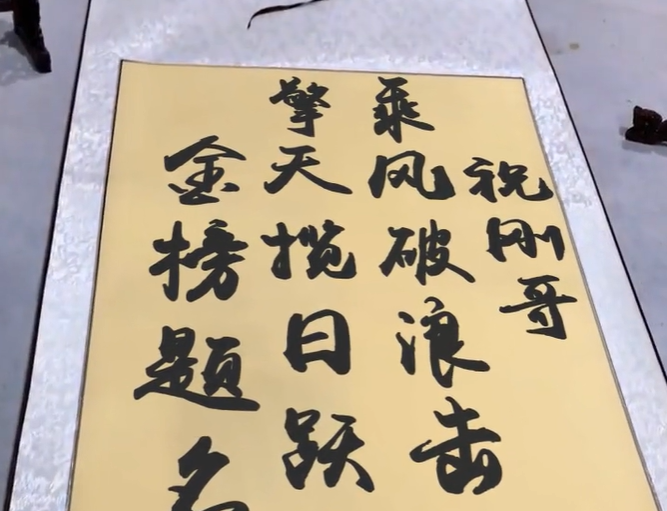 祝刚哥
乘风破浪击
擎天揽日跃
金榜题名